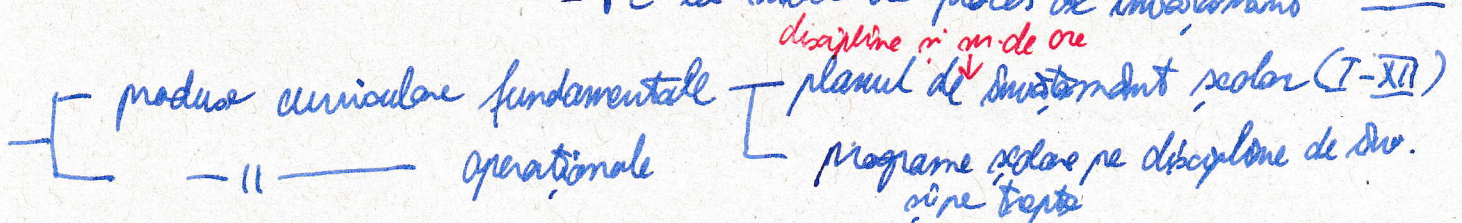 de proces de învățământ
discipline și nr. de ore
produse curriculare fundamentale planul de învățământ școlar (I-XII)
—II— operaționale programe școlare pe discipline de înv.
și pe trepte